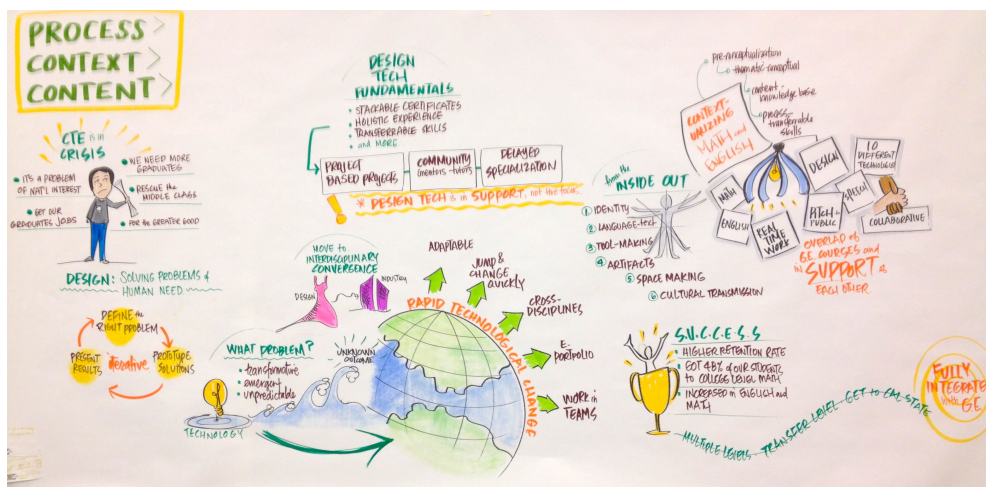 PROCESS >
CONTEXT >
CONTENT >
CTE is in
CRISIS
• IT'S A PROBLEM
OF NAT'L INTEREST
• GET OUR
GRADUATES JOBS
• WE NEED MORE
GRADUATES
• RESCUE the
MIDDLE CLASS
• FOR the GREATER GOOD
DESIGN: SOLVING PROBLEMS &
HUMAN NEED
DEFINE the
RIGHT PROBLEM
PRESENT
RESULTS
iterative
PROTOTYPE
SOLUTIONS
DESIGN
TECH
FUNDAMENTALS
• STACKABLE CERTIFICATES
• HOLISTIC EXPERIENCE
• TRANSFERRABLE SKILLS
• and MORE
PROJECT
BASED PROJECTS
COMMUNITY
mentors - tutors
DELAYED
SPECIALIZATION
! * DESIGN TECH is in SUPPORT, not the focus
MOVE to
INTERDISCIPLINARY
CONVERGENCE
DESIGN
INDUSTRY
WHAT PROBLEM?
• transformative
• emergent
• unpredictable
UNKNOWN
OUTCOME
TECHNOLOGY
RAPID TECHNOLOGICAL CHANGE
ADAPTABLE
JUMP &
CHANGE
quickly
CROSS-
DISCIPLINES
E-
PORTFOLIO
WORK in
TEAMS
from the
INSIDE OUT
1 IDENTITY
2 LANGUAGE-text
3 TOOL-MAKING
4 ARTIFACTS
5 SPACE MAKING
6 CULTURAL TRANSMISSION
pre-conceptualization
thematic-conceptual
content-
knowledge base
process-
transferrable
skills
CONTEXT-
UALIZING
MATH and
ENGLISH
MATH
ENGLISH
REAL
TIME
WORK
PITCH to
PUBLIC
DESIGN
SPEECH
10
DIFFERENT
TECHNOLOGIES
COLLABORATIVE
OVERLAP of
GE COURSES and
in SUPPORT of
EACH OTHER
S.U.C.C.E.S.S
• HIGHER RETENTION RATE
• GOT 48% of OUR STUDENTS
to COLLEGE LEVEL MATH
• INCREASED in ENGLISH and
MATH
MULTIPLE LEVELS - TRANSFER LEVEL - GET to CAL STATE
FULLY
INTEGRATE
with G.E.